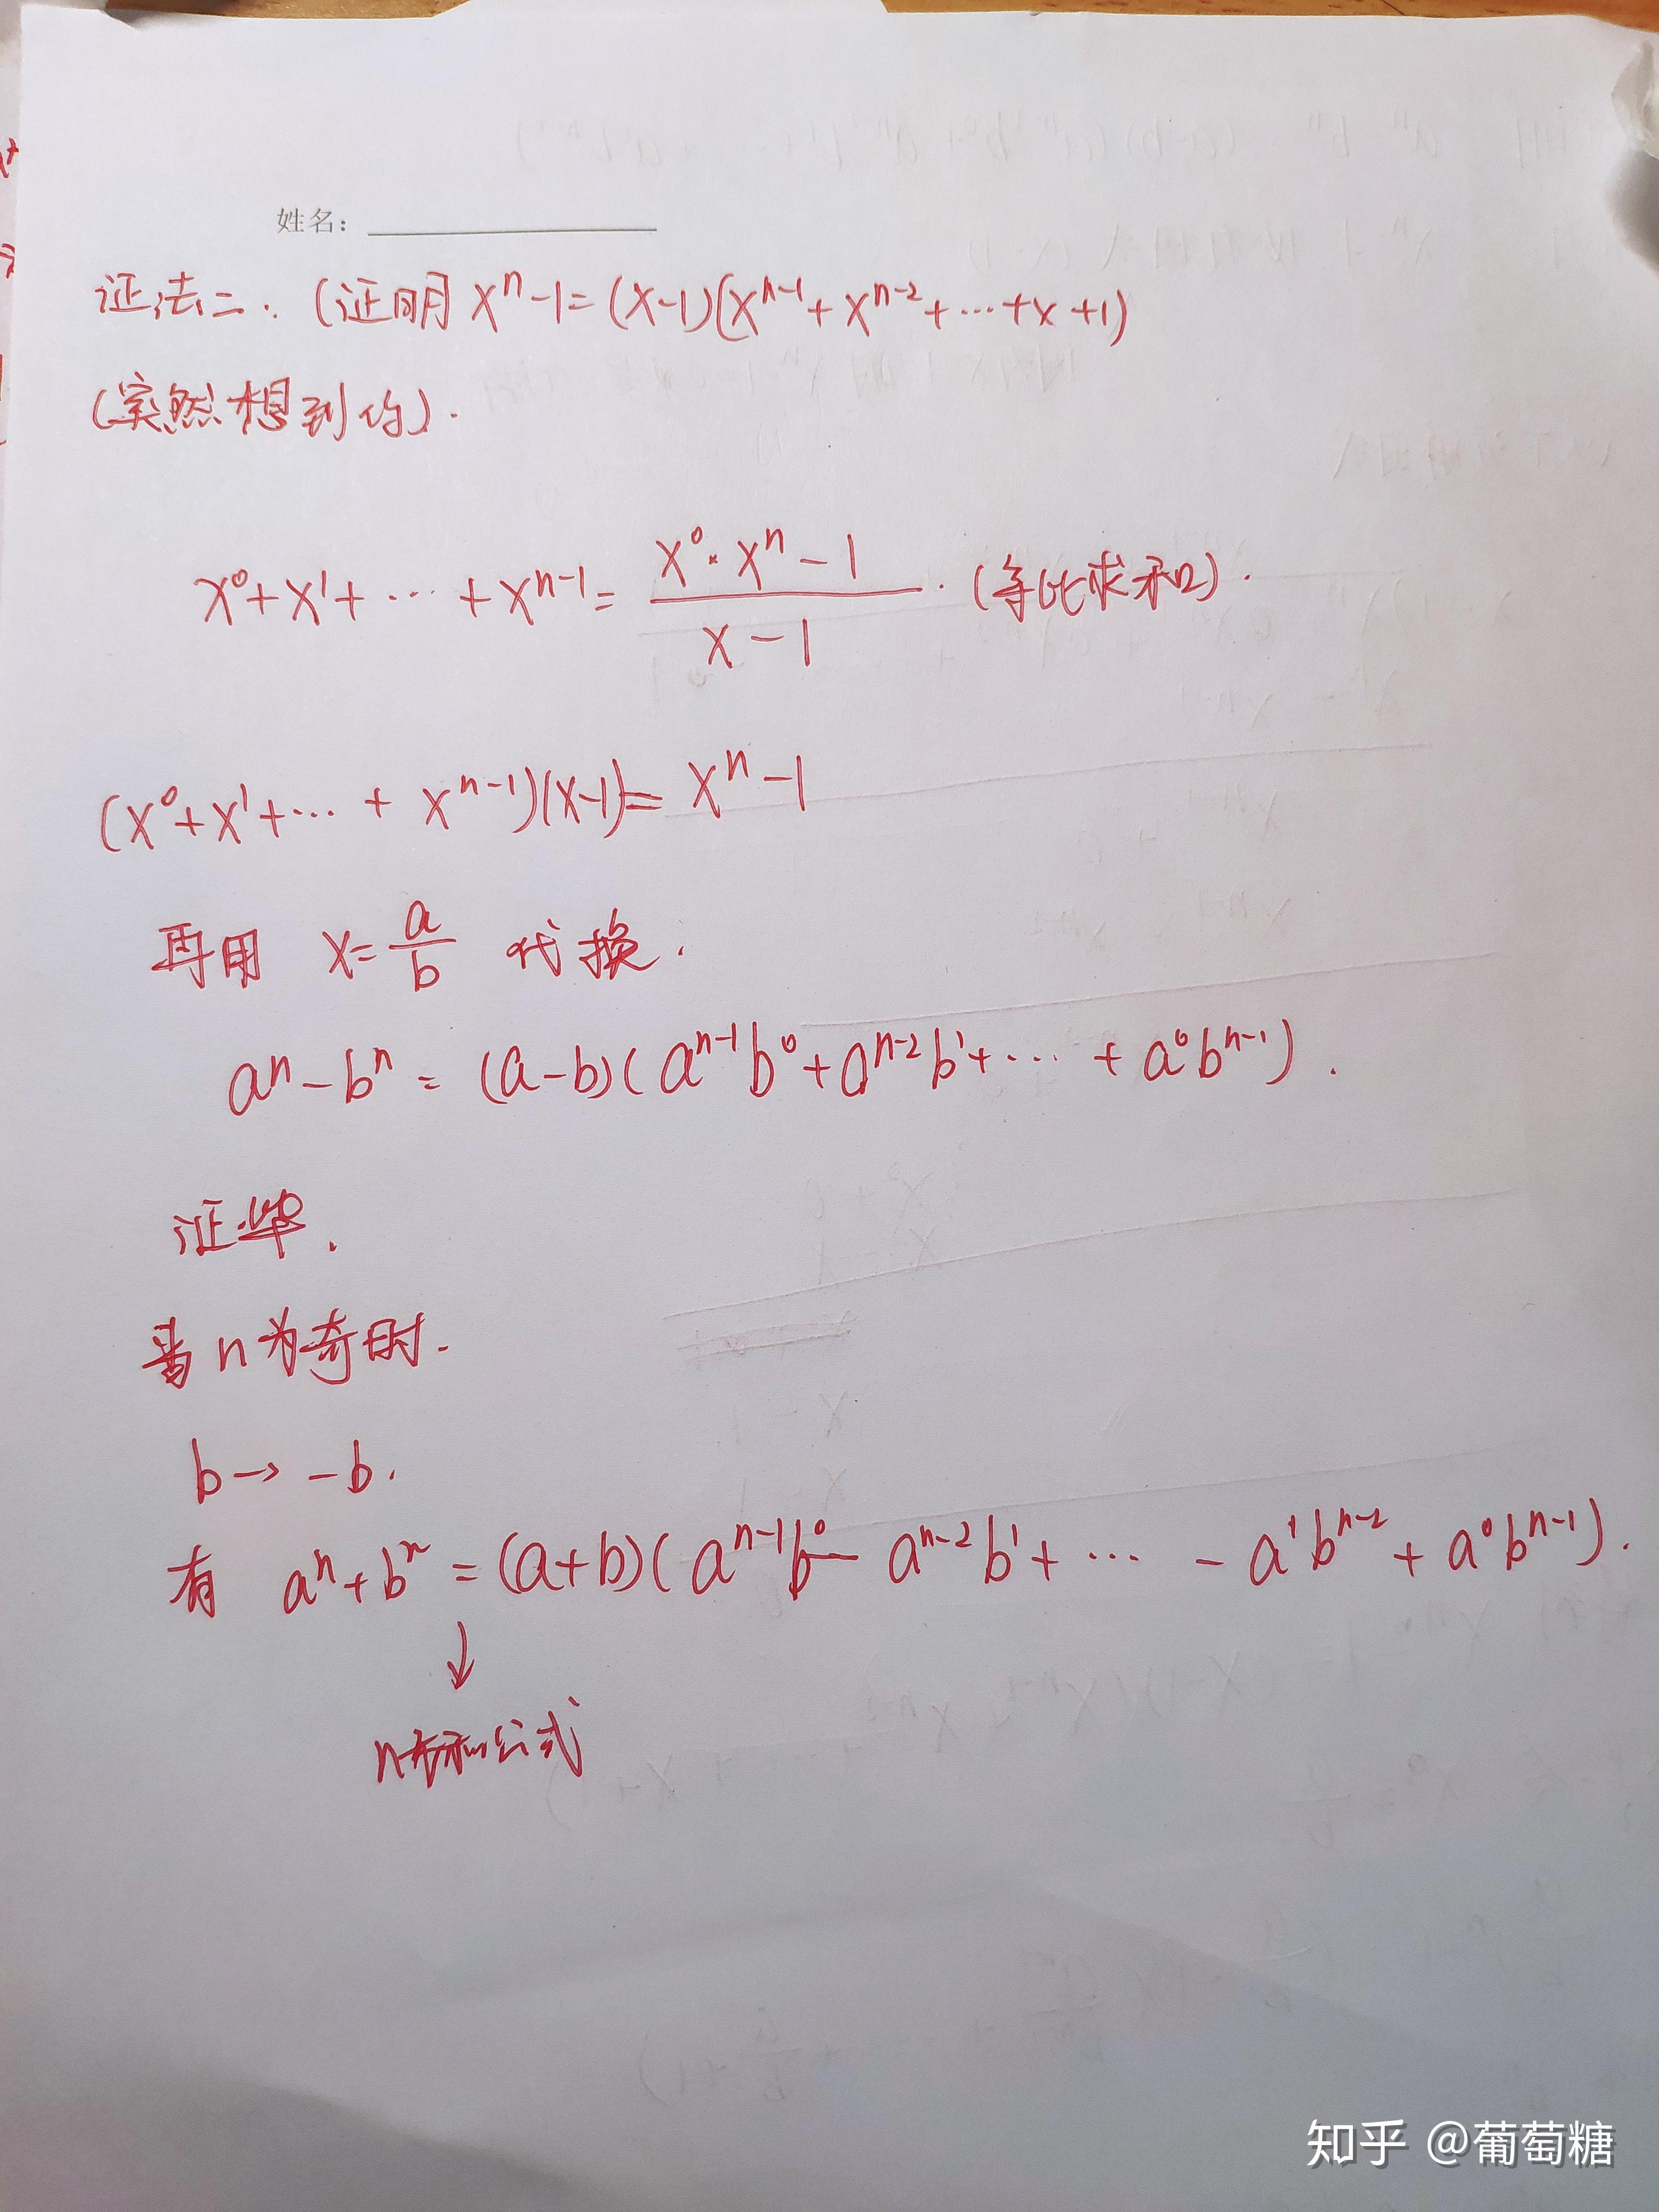 姓名:
证法二:(证明 xⁿ-1=(x-1)(xⁿ⁻¹+xⁿ⁻²+…+x+1)
(突然想到的).
x⁰+x¹+…+xⁿ⁻¹= (x⁰·xⁿ-1)/(x-1). (等比求和).
(x⁰+x¹+…+xⁿ⁻¹)(x-1)=xⁿ-1
再用 x=a/b 代换.
aⁿ-bⁿ=(a-b)(aⁿ⁻¹b⁰+aⁿ⁻²b¹+…+a⁰bⁿ⁻¹).
证毕.
当n为奇时.
b→-b.
有 aⁿ+bⁿ=(a+b)(aⁿ⁻¹b⁰-aⁿ⁻²b¹+…-a¹bⁿ⁻²+a⁰bⁿ⁻¹).
↓
n方和公式
知乎 @葡萄糖